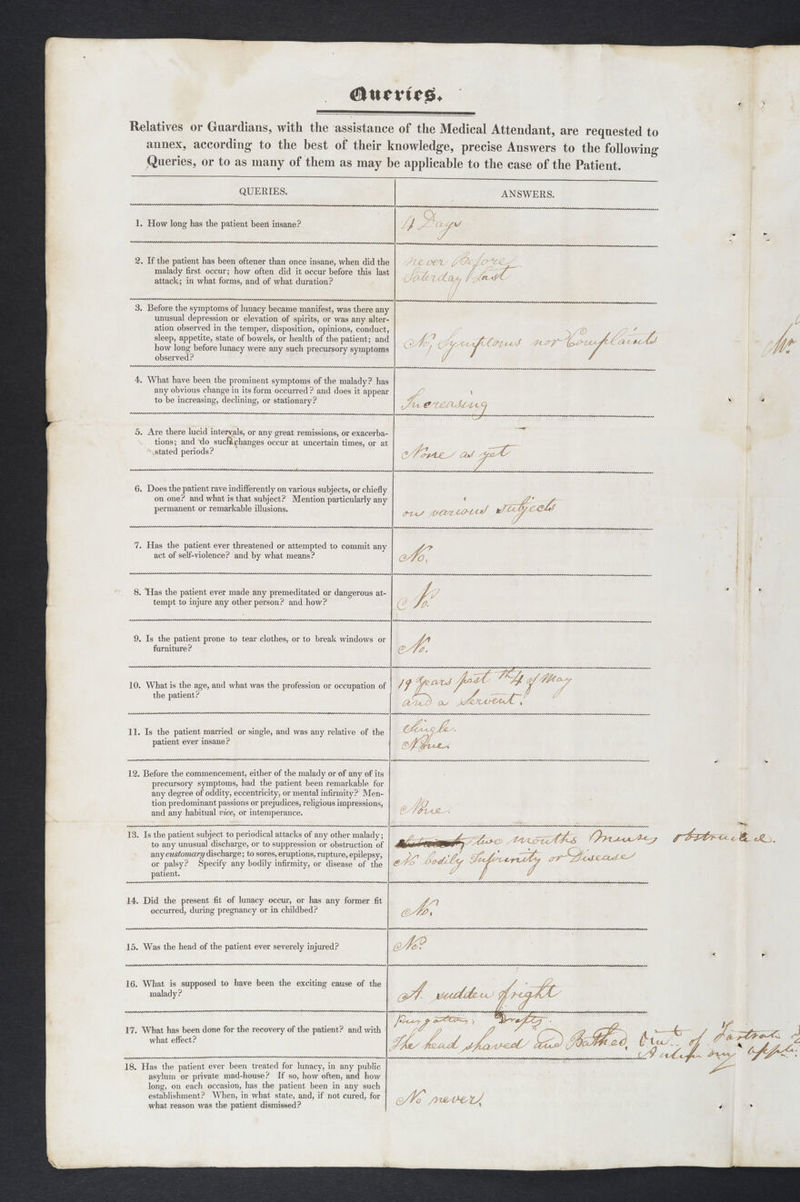 Queries.
Relatives or Guardians, with the assistance of the Medical Attendant, are requested to
annex, according to the best of their knowledge, precise Answers to the following
Queries, or to as many of them as may be applicable to the case of the Patient.
QUERIES.
ANSWERS.
1. How long has the patient been insane?
4 Days
2. If the patient has been oftener than once insane, when did the
malady first occur; how often did it occur before this last
attack; in what forms, and of what duration?
never Before
Saterday Last
3. Before the symptoms of lunacy became manifest, was there any
unusual depression or elevation of spirits, or was any alter-
ation observed in the temper, disposition, opinions, conduct,
sleep, appetite, state of bowels, or health of the patient; and
how long before lunacy were any such precursory symptoms
observed?
No, Symptoms nor Complaints
Mr
4. What have been the prominent symptoms of the malady? has
any obvious change in its form occurred? and does it appear
to be increasing, declining, or stationary?
Increasing
5. Are there lucid intervals, or any great remissions, or exacerba-
tions; and do such changes occur at uncertain times, or at
stated periods?
None as yet
6. Does the patient rave indifferently on various subjects, or chiefly
on one? and what is that subject? Mention particularly any
permanent or remarkable illusions.
on various subjects
7. Has the patient ever threatened or attempted to commit any
act of self-violence? and by what means?
No.
8. Has the patient ever made any premeditated or dangerous at-
tempt to injure any other person? and how?
No.
9. Is the patient prone to tear clothes, or to break windows or
furniture?
No.
10. What is the age, and what was the profession or occupation of
the patient?
19 years past th4 of May
and a Servent.
11. Is the patient married or single, and was any relative of the
patient ever insane?
Single.
None.
12. Before the commencement, either of the malady or of any of its
precursory symptoms, had the patient been remarkable for
any degree of oddity, eccentricity, or mental infirmity? Men-
tion predominant passions or prejudices, religious impressions,
and any habitual vice, or intemperance.
None.
13. Is the patient subject to periodical attacks of any other malady;
to any unusual discharge, or to suppression or obstruction of
any customary discharge; to sores, eruptions, rupture, epilepsy,
or palsy? Specify any bodily infirmity, or disease of the
patient.
two months Menses obstructed.
No bodily Infirmity or Disease
14. Did the present fit of lunacy occur, or has any former fit
occurred, during pregnancy or in childbed?
No.
15. Was the head of the patient ever severely injured?
No.
16. What is supposed to have been the exciting cause of the
malady?
A sudden fright
17. What has been done for the recovery of the patient? and with
what effect?
The head shaved and Bathed, of
18. Has the patient ever been treated for lunacy, in any public
asylum or private mad-house? If so, how often, and how
long, on each occasion, has the patient been in any such
establishment? When, in what state, and, if not cured, for
what reason was the patient dismissed?
No never.